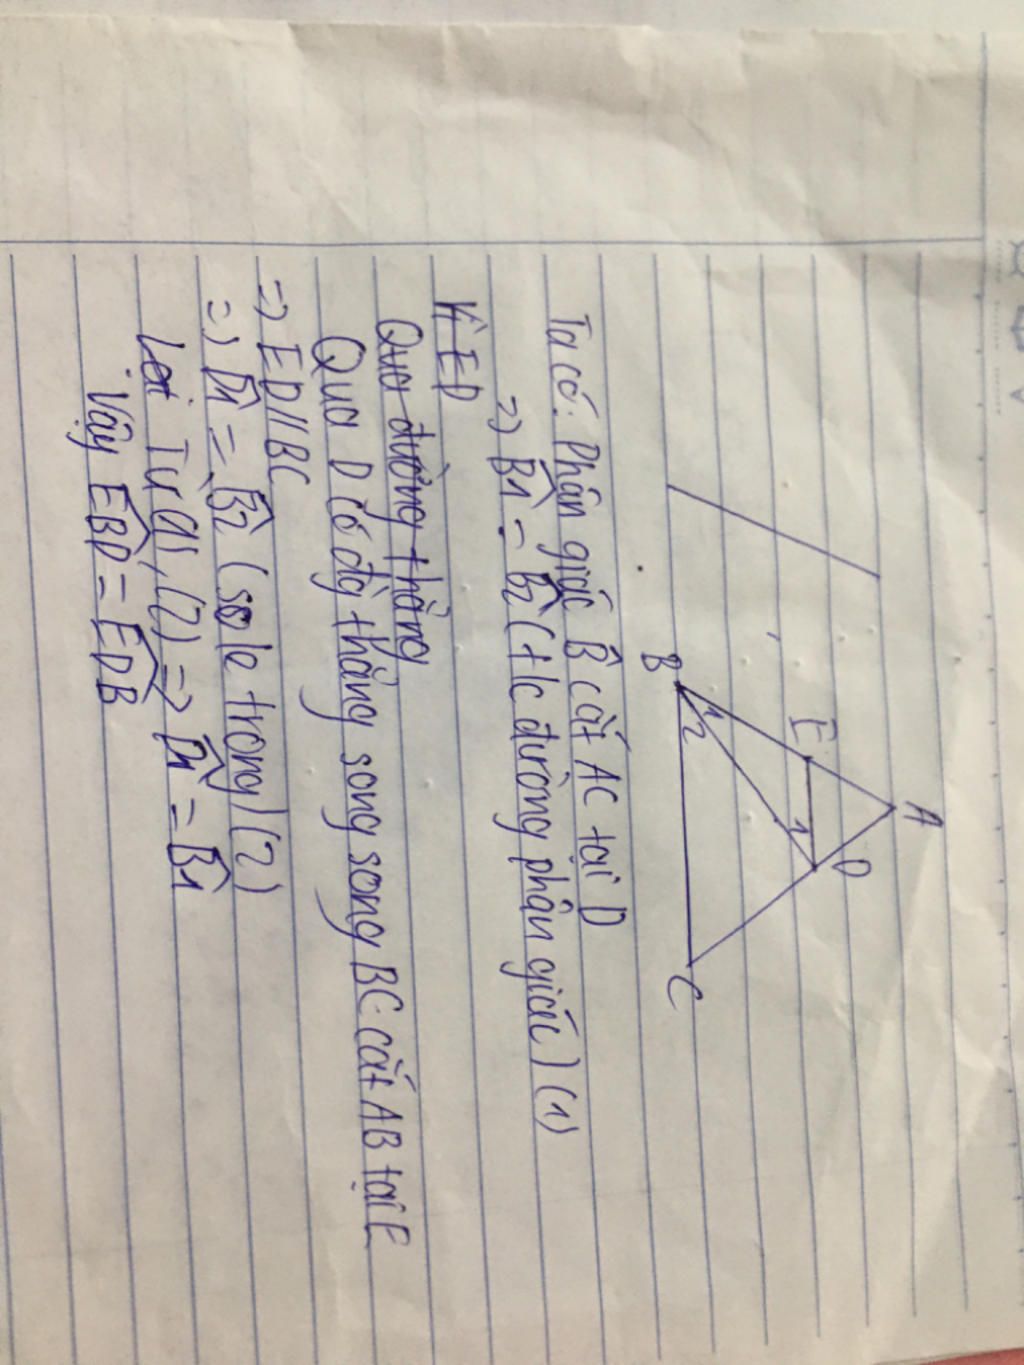 A
E
1
D
B
1
2
C
Ta có: Phân giác B̂ cắt AC tại D
=> B̂1 = B̂2 (t/c đường phân giác) (1)
Vì ED
Qua đường thẳng
Qua D có đg thẳng song song BC cắt AB tại E
=> ED//BC
=> D̂1 = B̂2 (sole trong) (2)
Từ (1), (2) => D̂1 = B̂1
Vậy EB̂D = ED̂B